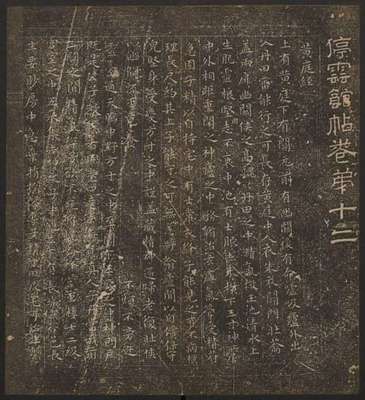 停雲館帖卷第十二
黃庭經
上有黃庭下有關元前有幽闕後有命噓吸廬外出
入丹田審能行之可長存黃庭中人衣朱衣關門壯籥
蓋兩扉幽闕俠之高巍丹田之中精氣微玉池清水上
生肥靈根堅志不衰中池有士服赤朱橫下三寸神所居
中外相距重閉之神廬之中務脩治玄廱氣管受精符
急固子精以自持宅中有士常衣絳子能見之可不病橫
理長尺約其上子能守之可無恙呼噏廬間以自償保守
完堅身受慶方寸之中謹蓋藏精神還歸老復壯俠
以幽闕流下竟養子玉不煩不旁迕
靈臺通天臨中野方寸之中至關下玉房之中神門戶
既是公子教我者明堂四達法海源真人子丹當我前
三關之間精氣深子欲不死脩崑崙絳宮重樓十二級
宮室之中五采集赤神之子中池立下有長城玄谷邑長
生要眇房中急棄捐俗專子精寸田尺宅可治生